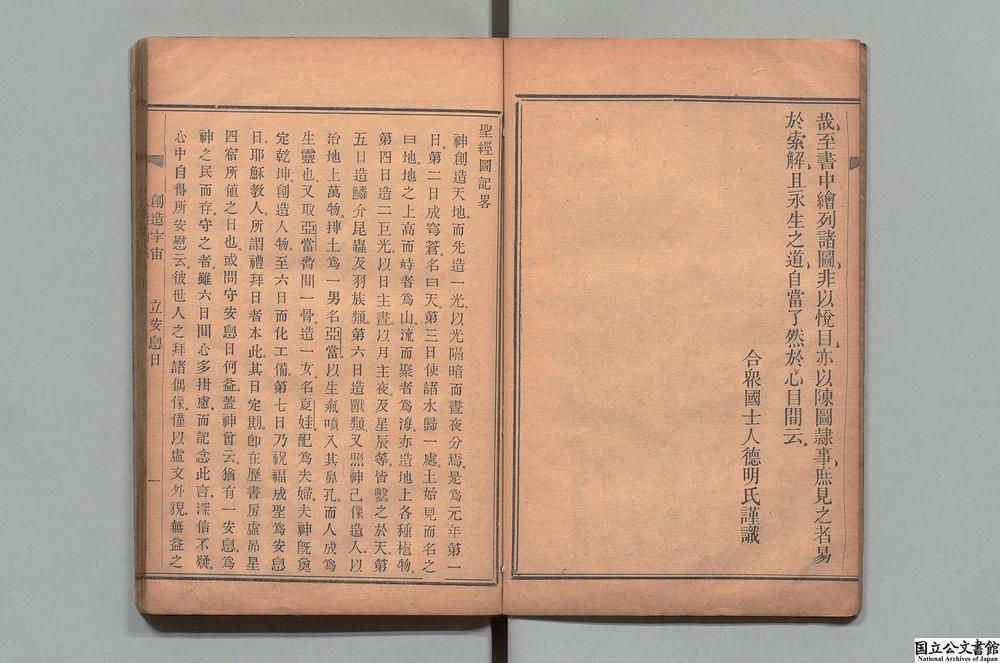 哉、至書中繪列諸圖、非以悅目、亦以陳圖隷事、庶見之者易
於索解、且永生之道、自當了然於心目間云。
合衆國士人德明氏謹識
聖經圖記畧
神創造天地、而先造一光、以光隔暗而晝夜分焉、是爲元年第一
日。第二日成穹蒼、名曰天。第三日使諸水歸一處、土始見而名之
曰地、地之上高而峙者爲山、流而聚者爲海、亦造地上各種植物。
第四日造二巨光、以日主晝、以月主夜、及星辰等皆繫之於天。第
五日造鱗介昆蟲及羽族類。第六日造獸類、又照神己像造人、以
治地上萬物、摶土爲一男、名亞當、以生氣噴入其鼻孔、而人成爲
生靈也。又取亞當脅間一骨、造一女、名夏娃、配爲夫婦。夫神旣奠
定乾坤、創造人物、至六日而化工備、第七日乃祝福成聖爲安息
日、耶穌敎人所謂禮拜日者本此、其日定期、卽在歷書房虛昴星
四宿所値之日也。或問守安息日何益、蓋神曾云、猶有一安息、爲
神之民而存、守之者、雖六日間心多掛慮、而記念此言、深信不疑、
心中自得所安慰云。彼世人之拜諸偶像、僅以虛文外貌無益之
創造宇宙　立安息日　一
国立公文書館
National Archives of Japan